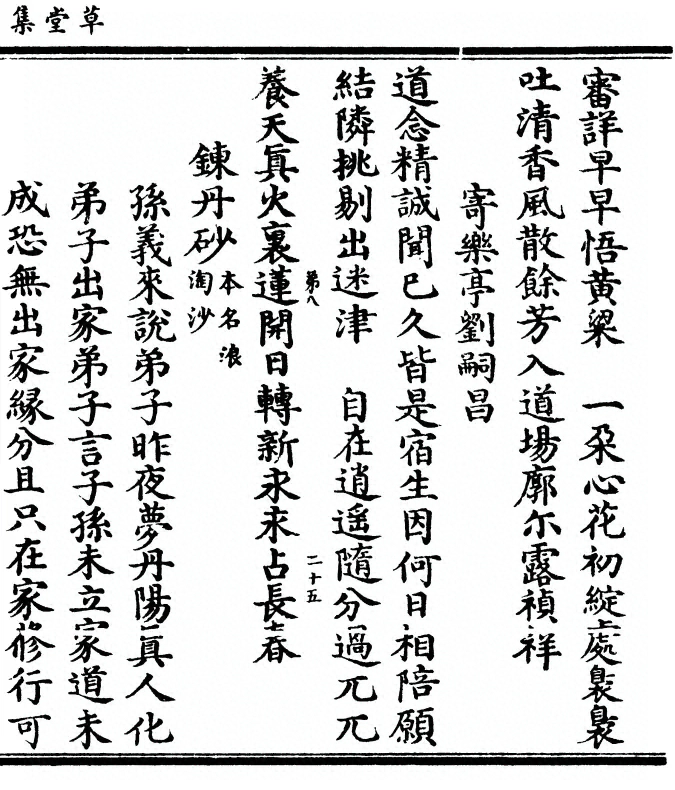 草堂集
審詳早早悟黄粱　一朶心花初綻處裊裊
吐清香風散餘芳入道場廓尓露禎祥
寄樂亭劉嗣昌
道念精誠聞已久皆是宿生因何日相陪願
結隣挑剔出迷津　自在逍遥隨分過兀兀
第八　二十五
養天眞火裏蓮開日轉新永永占長春
鍊丹砂 本名浪淘沙
孫義來說弟子昨夜夢丹陽眞人化
弟子出家弟子言子孫未立家道未
成恐無出家緣分且只在家修行可